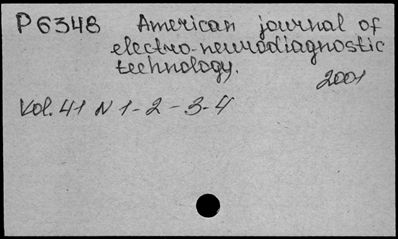 P6348 American journal of
electro-neurodiagnostic
technology.
2001
Vol. 41 N 1-2-3-4